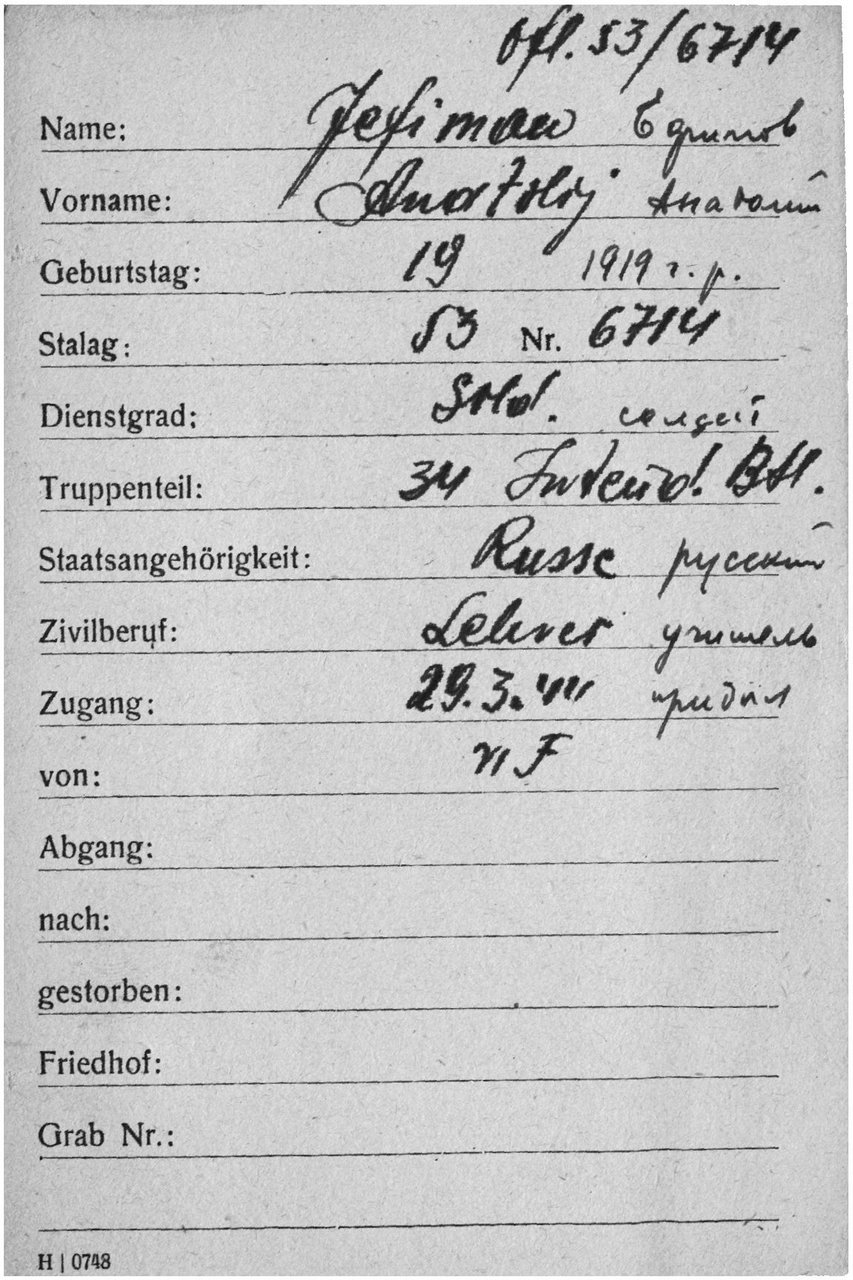 Ofl. 53/6714
Name: Jefimow Ефимов
Vorname: Anatolij Анатолий
Geburtstag: 19 1919 г. р.
Stalag: 53 Nr. 6714
Dienstgrad: Sold. солдат
Truppenteil: 34 Intend. Btl.
Staatsangehörigkeit: Russe русский
Zivilberuf: Lehrer учитель
Zugang: 29.3.44 прибыл
von: VI F
Abgang:
nach:
gestorben:
Friedhof:
Grab Nr.:
H | 0748